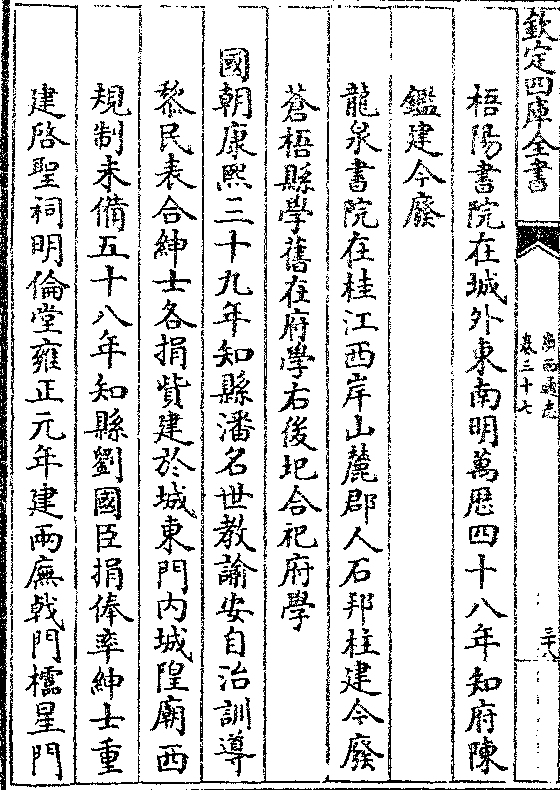 欽定四庫全書
廣西通志
卷三十七
三十八
梧陽書院在城外東南明萬厯四十八年知府陳
鑑建今廢
龍泉書院在桂江西岸山麓郡人石邦柱建今廢
蒼梧縣學舊在府學右後圮合祀府學
國朝康熙三十九年知縣潘名世教諭安自治訓導
黎民表合紳士各捐貲建於城東門内城隍廟西
規制未備五十八年知縣劉國臣捐俸率紳士重
建啓聖祠明倫堂雍正元年建兩廡戟門櫺星門